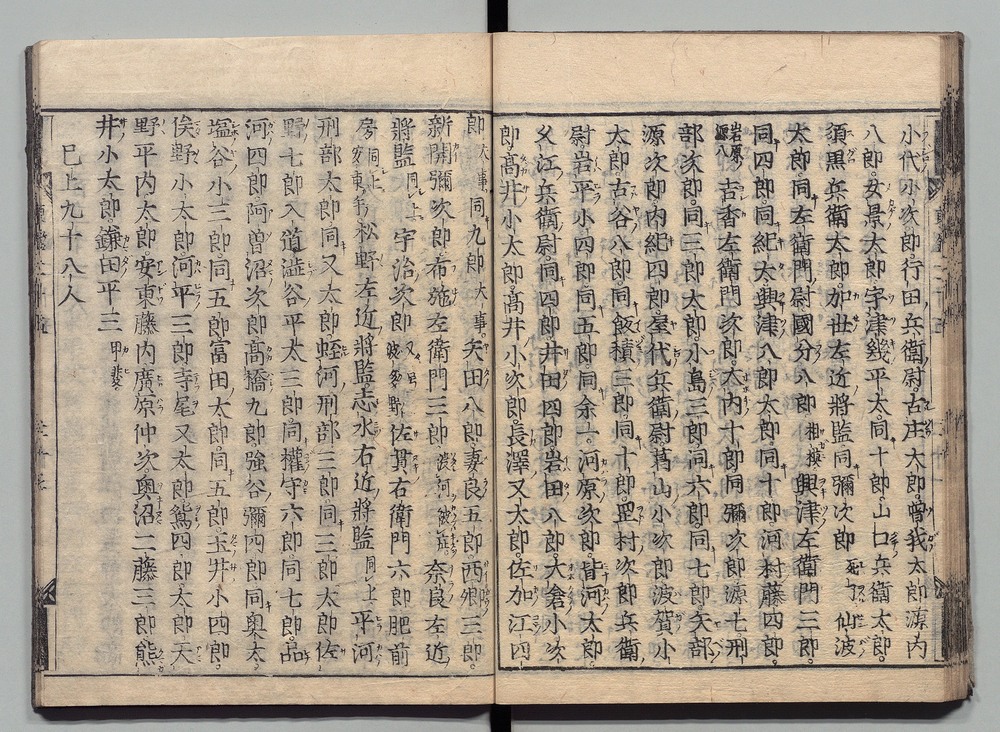 小代小次郎行田兵衛尉古庄太郎曾我太郎須内
八郎女景太郎宇津幾平太同十郎山口兵衛太郎
須黒兵衛太郎加世左近將監同彌次郎死了仙波
太郎同左衛門尉國分八郎相模興津左衛門三郎
同四郎同紀太興津八郎太郎同十郎河村藤四郎
岩原源八古香左衛門次郎大内十郎同彌次郎源七刑
部次郎同三郎太郎小島三郎同六郎同七郎矢部
源次郎内紀四郎屋代兵衛尉葛山小次郎波賀小
太郎古谷八郎同飯積三郎同十郎罡村次郎兵衛
尉岩平小四郎同五郎同余一河原次郎皆河太郎
父江兵衛尉同四郎井田四郎岩田八郎大倉小次
郎高井小太郎高井小次郎長澤又太郎佐加江四
郎大事同九郎大事矢田八郎妻良五郎西郷三郎
新開彌次郎布施左衛門三郎奈良左近
將監同上宇治次郎波多野佐貫右衛門六郎肥前
房同上安東手松野左近將監志水右近將監同上平河
刑部太郎同又太郎蛭河刑部三郎同三郎太郎佐
野七郎入道澁谷平太三郎同權守六郎同七郎品
河四郎阿曽沼次郎高橋九郎強谷彌四郎同奥太
塩谷小三郎同五郎富田太郎同五郎玉井小四郎
俟野小太郎河平三郎寺尾又太郎鴛四郎太郎天
野平内太郎安東藤内廣原仲次奥沼二藤三郎熊
井小太郎鎌田平三甲斐
巳上九十八人